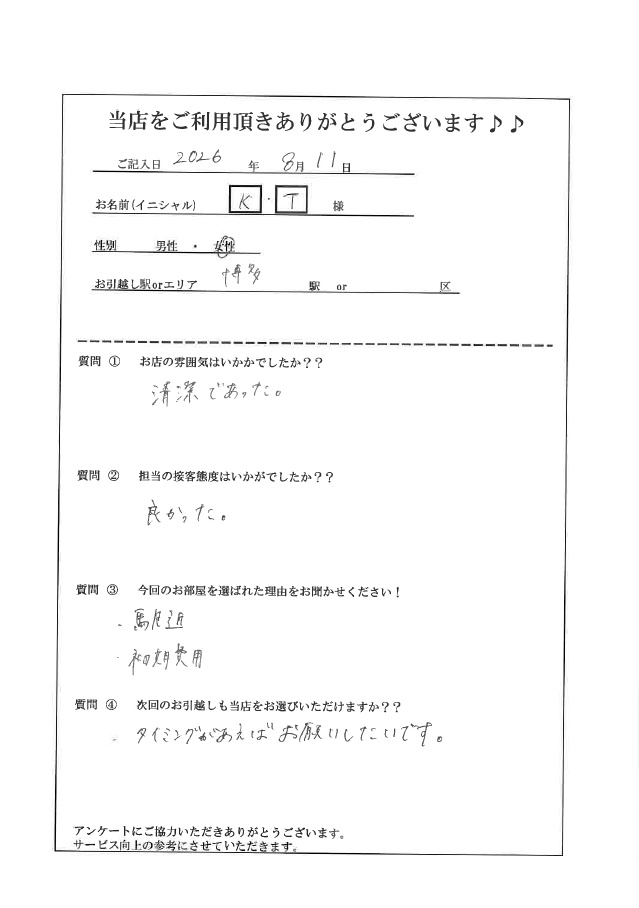 当店をご利用頂きありがとうございます♪♪
ご記入日 2026 年 8月 11日
お名前(イニシャル) K・T 様
性別 男性 ・ 女性
お引越し駅orエリア 博多 駅 or 区
質問 ① お店の雰囲気はいかかでしたか？？
清潔であった。
質問 ② 担当の接客態度はいかがでしたか？？
良かった。
質問 ③ 今回のお部屋を選ばれた理由をお聞かせください！
・駅近
・初期費用
質問 ④ 次回のお引越しも当店をお選びいただけますか？？
・タイミングがあえばお願いしたいです。
アンケートにご協力いただきありがとうございます。
サービス向上の参考にさせていただきます。